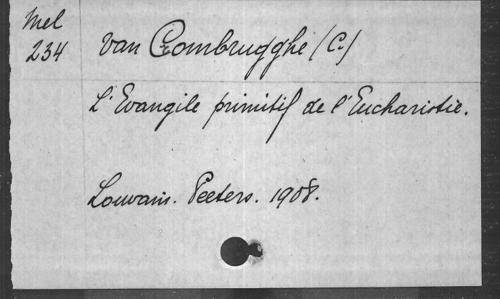 Mel
234
van Crombrugghe (C.)
L'Evangile primitif de l'Eucharistie.
Louvain. Peeters. 1908.